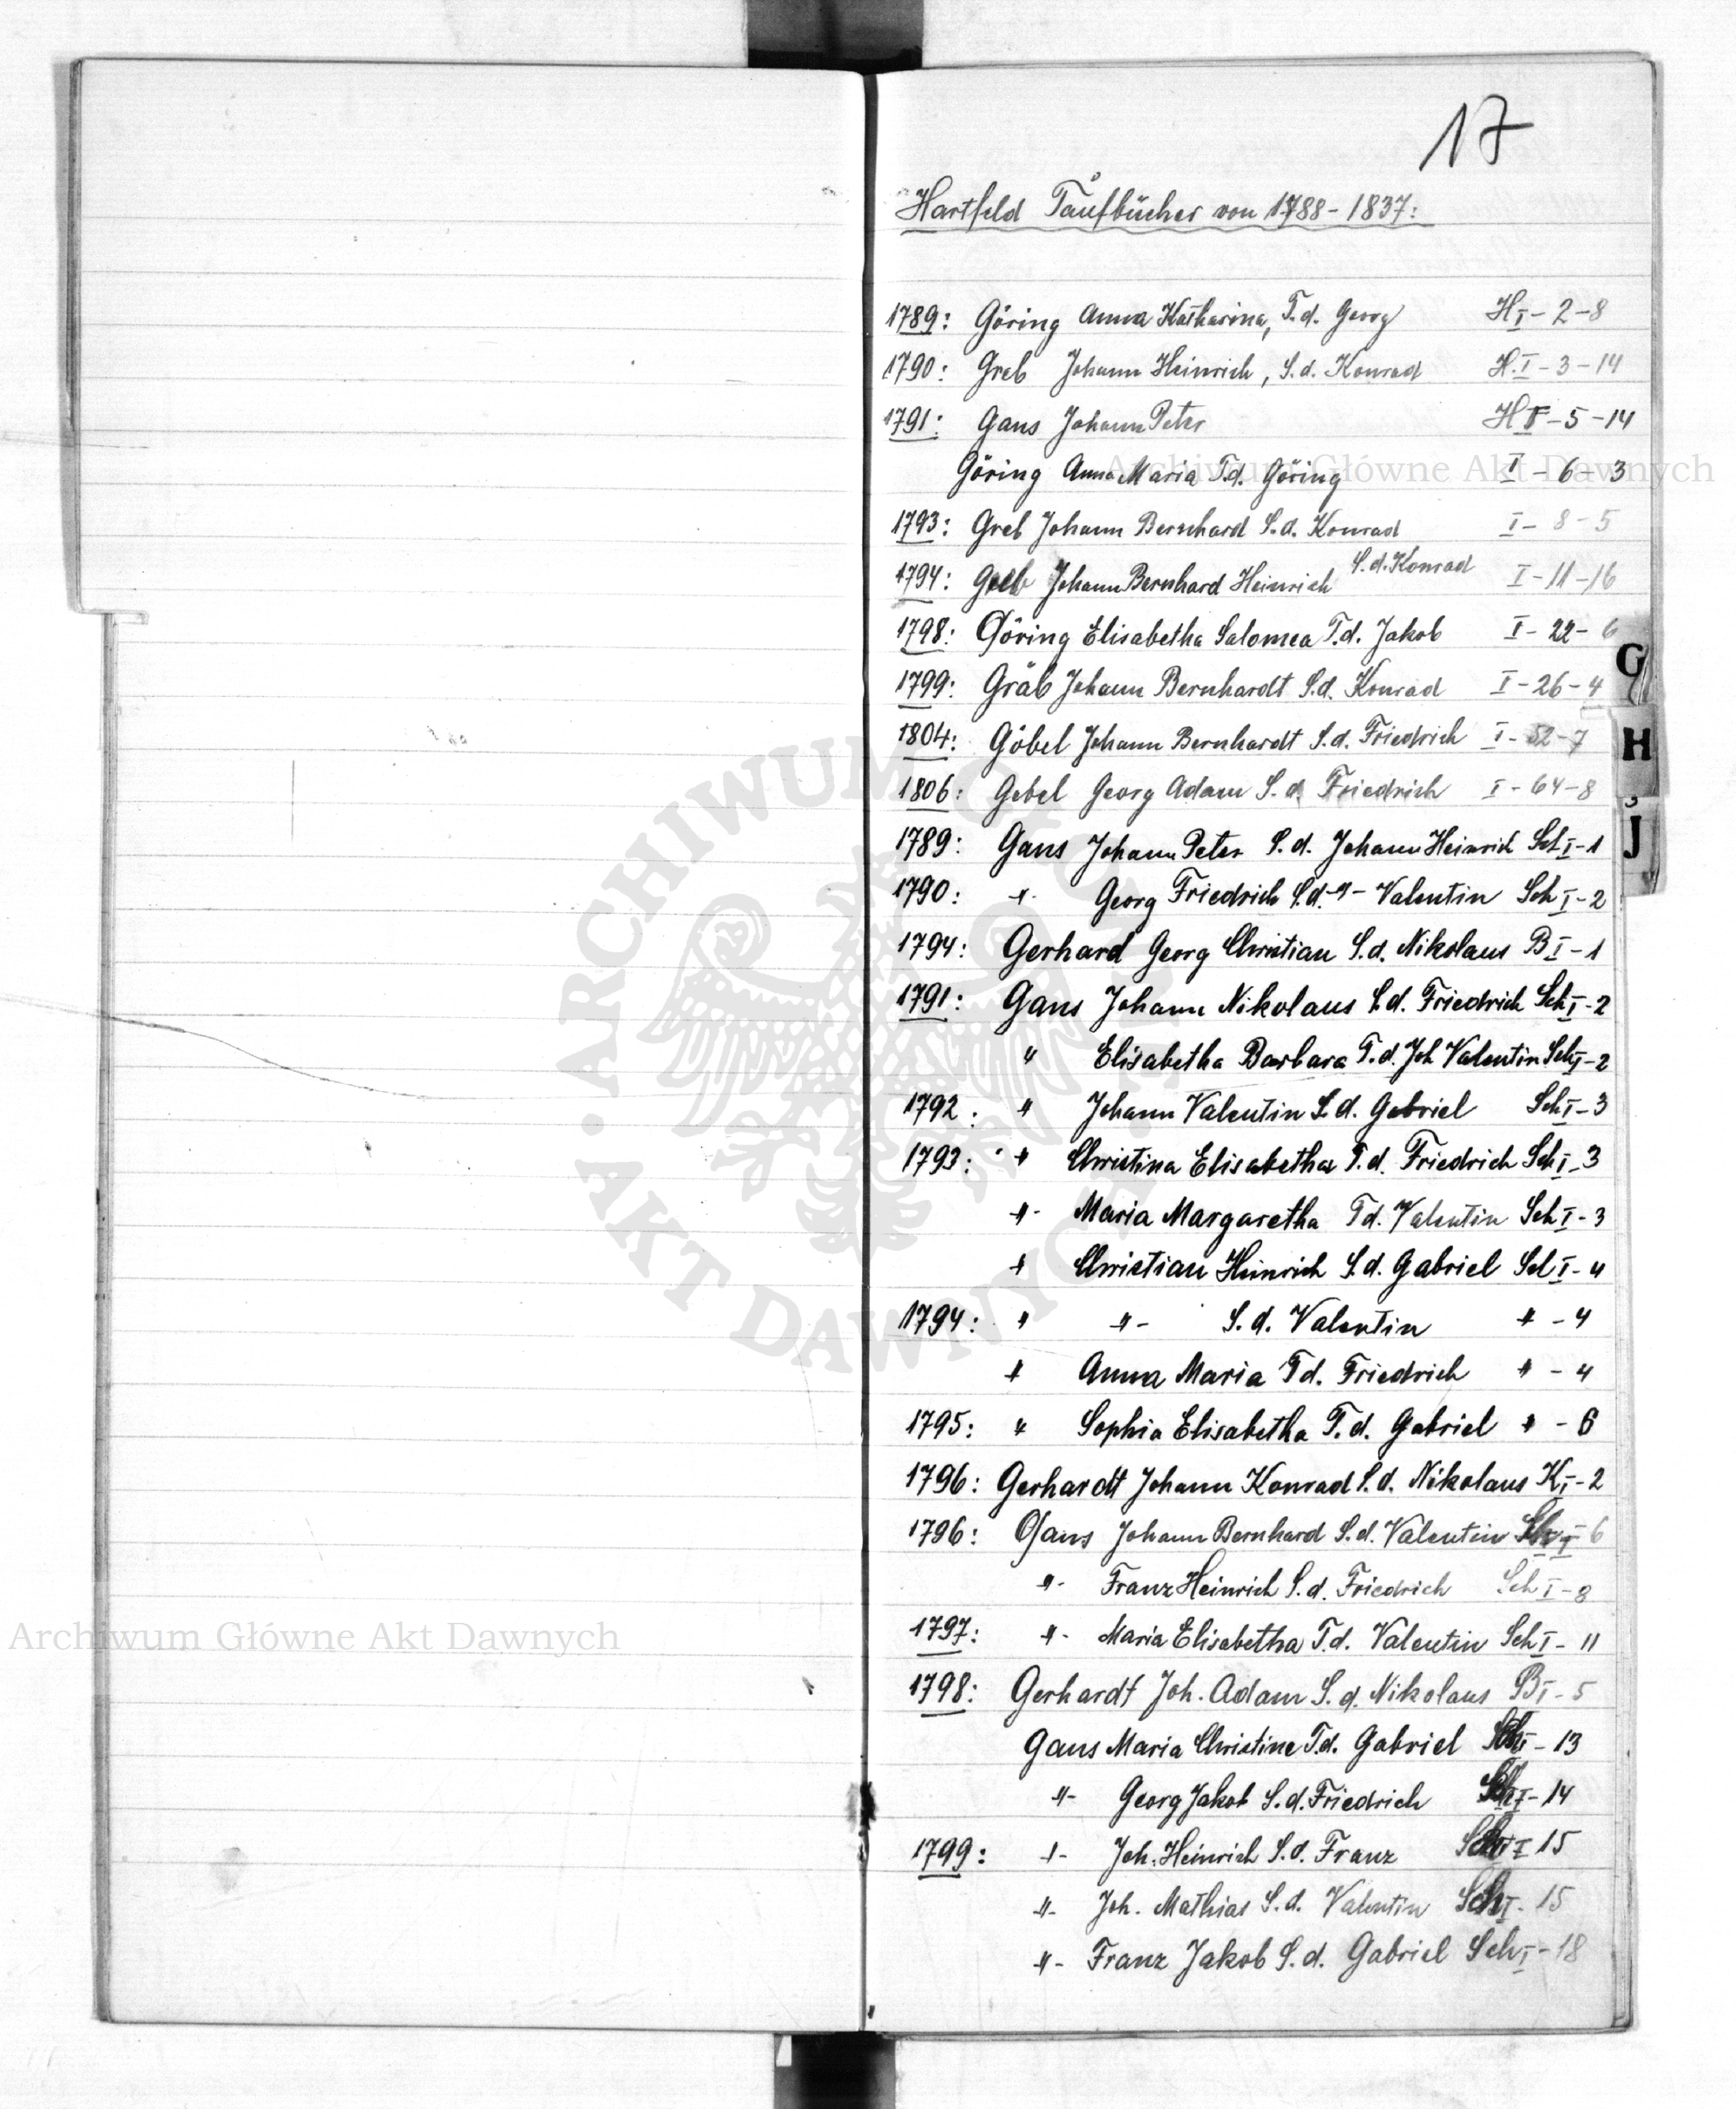 17
Hartfeld Taufbücher von 1788-1837:
1789: Göring Anna Katharina, T.d. Georg H I-2-8
1790: Greb Johann Heinrich, S.d. Konrad H.I-3-14
1791: Gans Johann Peter H I-5-14
Göring Anna Maria T.d. Göring I-6-3
1793: Greb Johann Bernhard S.d. Konrad I-8-5
1794: Greb Johann Bernhard Heinrich S.d. Konrad I-11-16
1798: Göring Elisabetha Salomea T.d. Jakob I-22-6
1799: Gräb Johann Bernhardt S.d. Konrad I-26-4
1804: Göbel Johann Bernhardt S.d. Friedrich I-52-7
1806: Gebel Georg Adam S.d. Friedrich I-64-8
1789: Gans Johann Peter S.d. Johann Heinrich Sch I-1
1790: -"- Georg Friedrich S.d. -"- Valentin Sch I-2
1794: Gerhard Georg Christian S.d. Nikolaus B I-1
1791: Gans Johann Nikolaus S.d. Friedrich Sch I-2
" Elisabetha Barbara T.d. Joh Valentin Sch I-2
1792: " Johann Valentin S.d. Gabriel Sch I-3
1793: " Christina Elisabetha T.d. Friedrich Sch I-3
-"- Maria Margaretha T.d. Valentin Sch I-3
" Christian Heinrich S.d. Gabriel Sch I-4
1794: " -"- S.d. Valentin " -4
" Anna Maria T.d. Friedrich " -4
1795: " Sophia Elisabetha T.d. Gabriel " -6
1796: Gerhardt Johann Konrad S.d. Nikolaus K I-2
1796: Gans Johann Bernhard S.d. Valentin Sch I-6
-"- Franz Heinrich S.d. Friedrich Sch I-8
1797: -"- Maria Elisabetha T.d. Valentin Sch I-11
1798: Gerhardt Joh. Adam S.d. Nikolaus B I-5
Gans Maria Christine T.d. Gabriel Sch I-13
-"- Georg Jakob S.d. Friedrich Sch I-14
1799: -"- Joh. Heinrich S.d. Franz Sch I 15
-"- Joh. Mathias S.d. Valentin Sch I-15
-"- Franz Jakob S.d. Gabriel Sch I-18
G
H
J
Archiwum Główne Akt Dawnych
Archiwum Główne Akt Dawnych
ARCHIWUM GŁÓWNE · AKT DAWNYCH ·